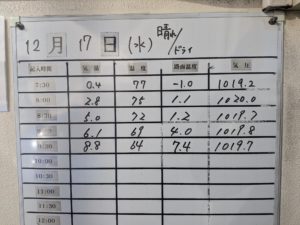 12月 17日 (水) 晴れ/ドライ
記入時間 気温 湿度 路面温度 気圧
7:30 0.4 77 -1.0 1019.2
8:00 2.8 75 1.1 1020.0
8:30 5.0 72 1.2 1019.7
9:00 6.1 69 4.0 1019.8
9:30 8.8 64 7.4 1019.7
10:00
10:30
11:00
11:30
12:00